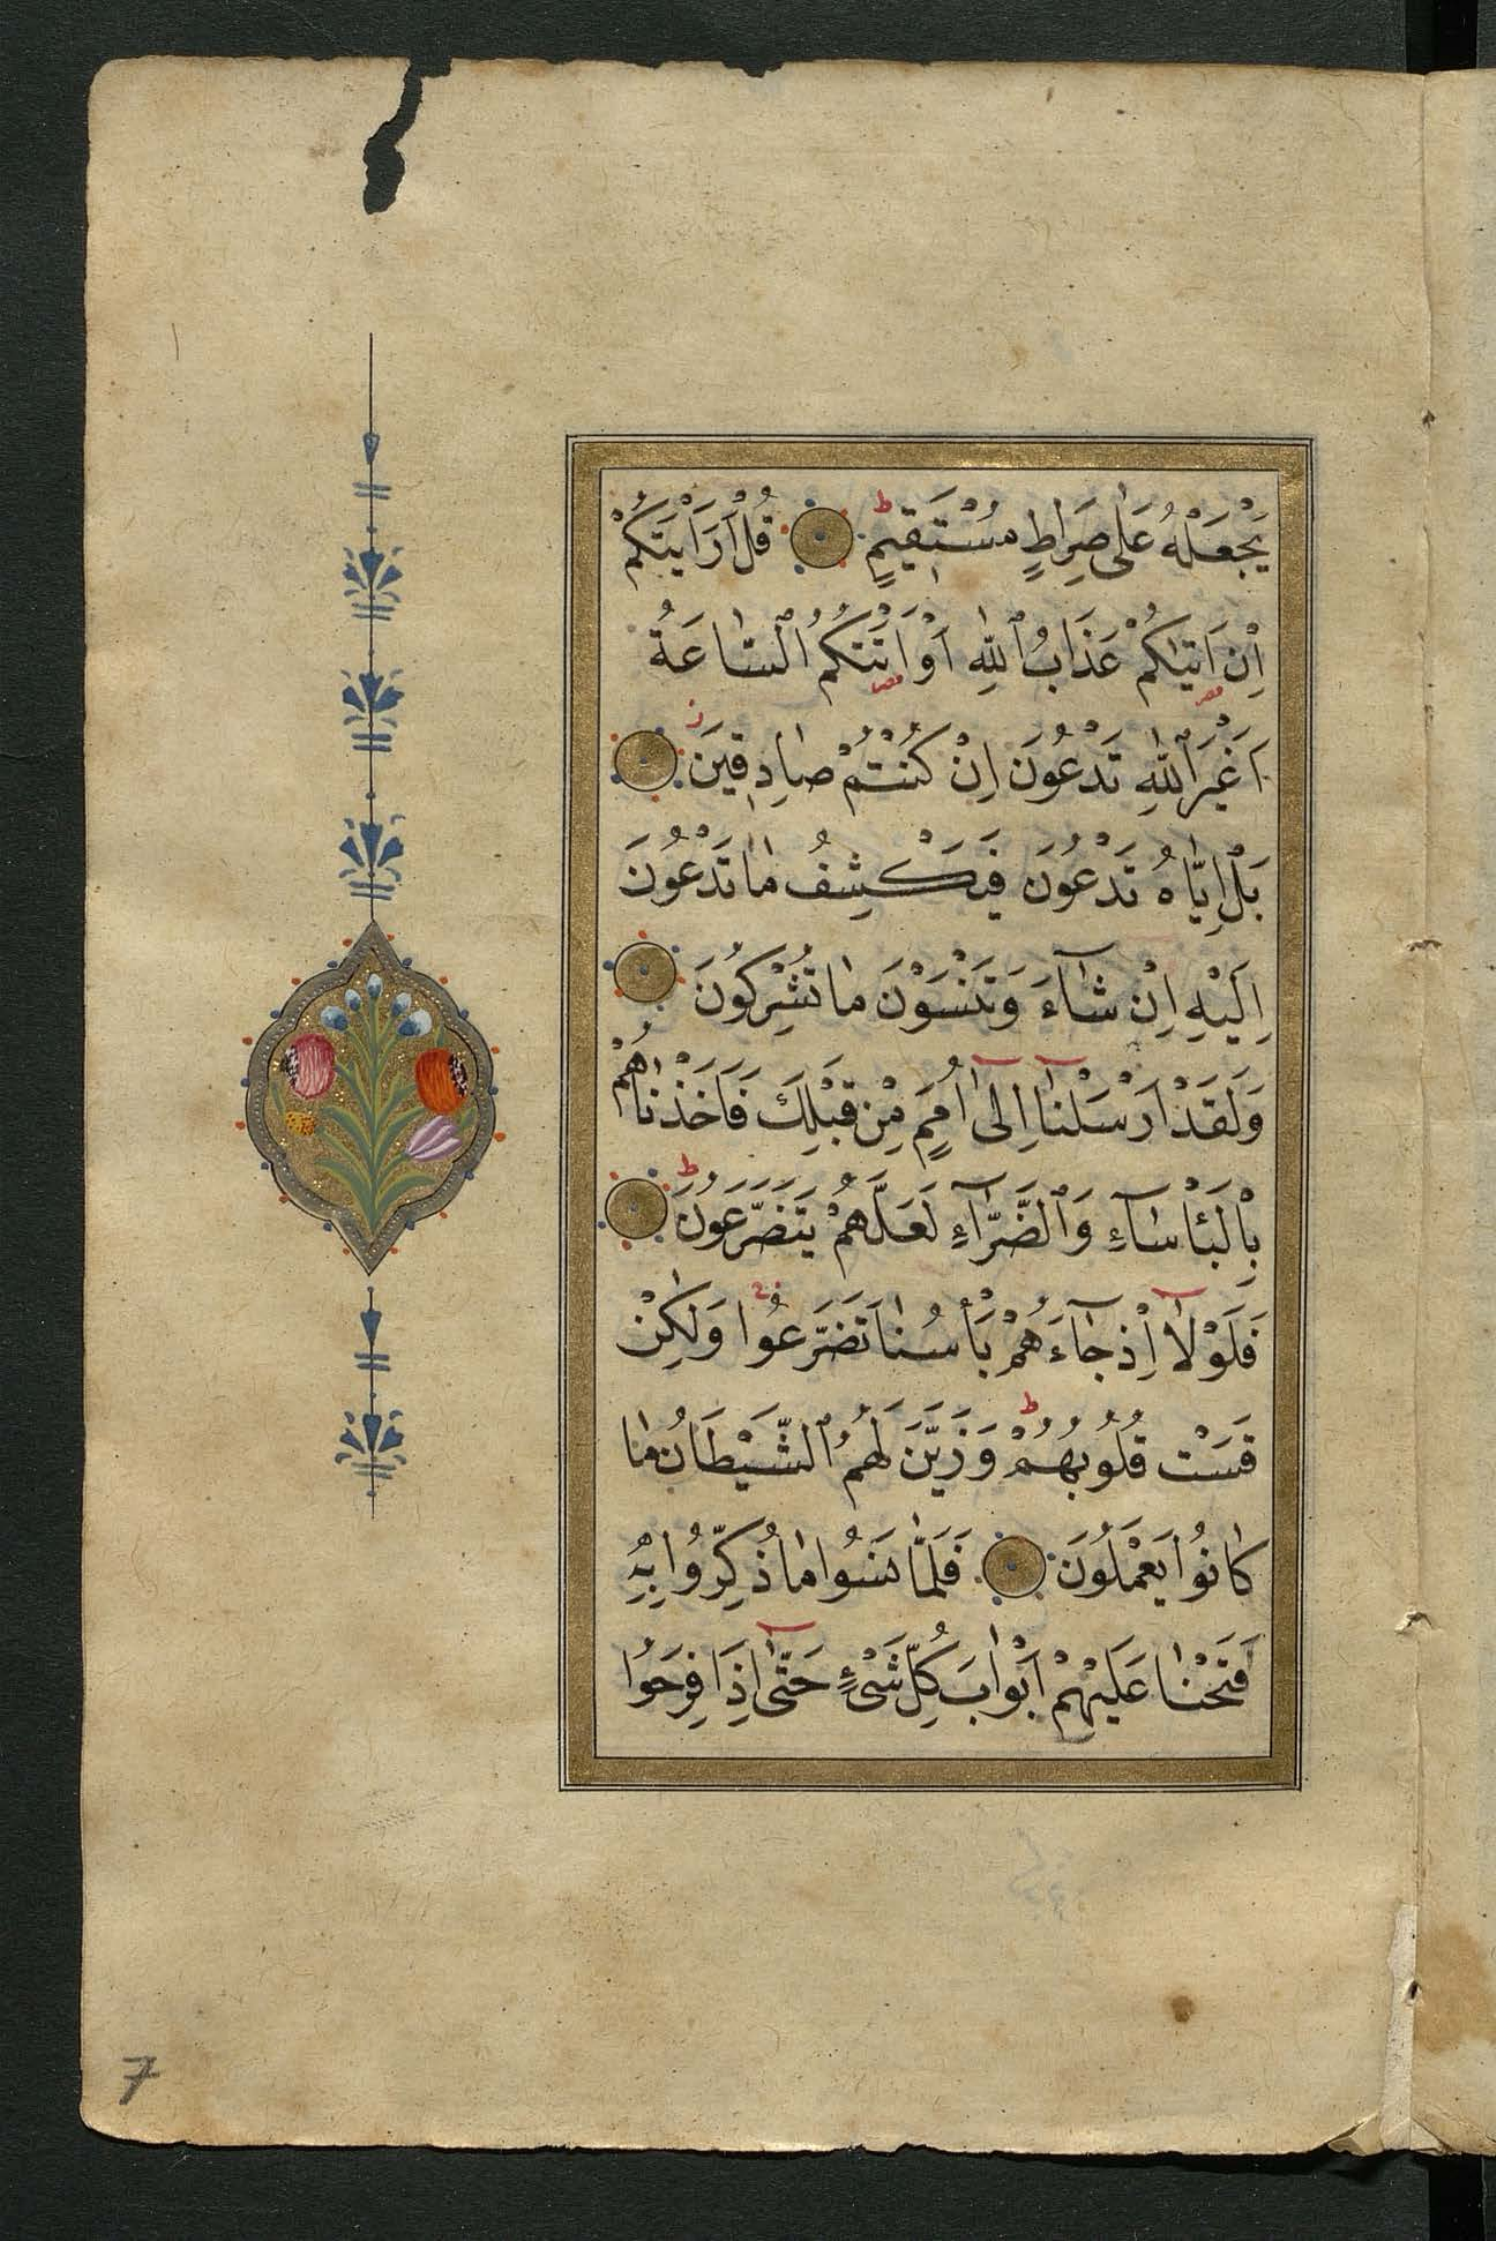 يَجْعَلْهُ عَلٰى صِرَاطٍ مُسْتَقِيمٍ ط قُلْ اَرَاَيْتَكُمْ
اِنْ اَتٰيكُمْ عَذَابُ ٱللّٰهِ اَوْ اَتَتْكُمُ ٱلسَّاعَةُ
اَغَيْرَ ٱللّٰهِ تَدْعُونَ اِنْ كُنْتُمْ صَادِقِينَ ز
بَلْ اِيَّاهُ تَدْعُونَ فَيَكْشِفُ مَا تَدْعُونَ
اِلَيْهِ اِنْ شَاۤءَ وَتَنْسَوْنَ مَا تُشْرِكُونَ
وَلَقَدْ اَرْسَلْنَاۤ اِلٰۤى اُمَمٍ مِنْ قَبْلِكَ فَاَخَذْنَاهُمْ
بِالْبَأْسَاۤءِ وَٱلضَّرَّاۤءِ لَعَلَّهُمْ يَتَضَرَّعُونَ ط
فَلَوْلَاۤ اِذْ جَاۤءَهُمْ بَأْسُنَا تَضَرَّعُوا وَلٰكِنْ
قَسَتْ قُلُوبُهُمْ ط وَزَيَّنَ لَهُمُ ٱلشَّيْطَانُ مَا
كَانُوا يَعْمَلُونَ فَلَمَّا نَسُوا مَا ذُكِّرُوا بِهِ
فَتَحْنَا عَلَيْهِمْ اَبْوَابَ كُلِّ شَىْءٍ حَتّٰۤى اِذَا فَرِحُوا
7